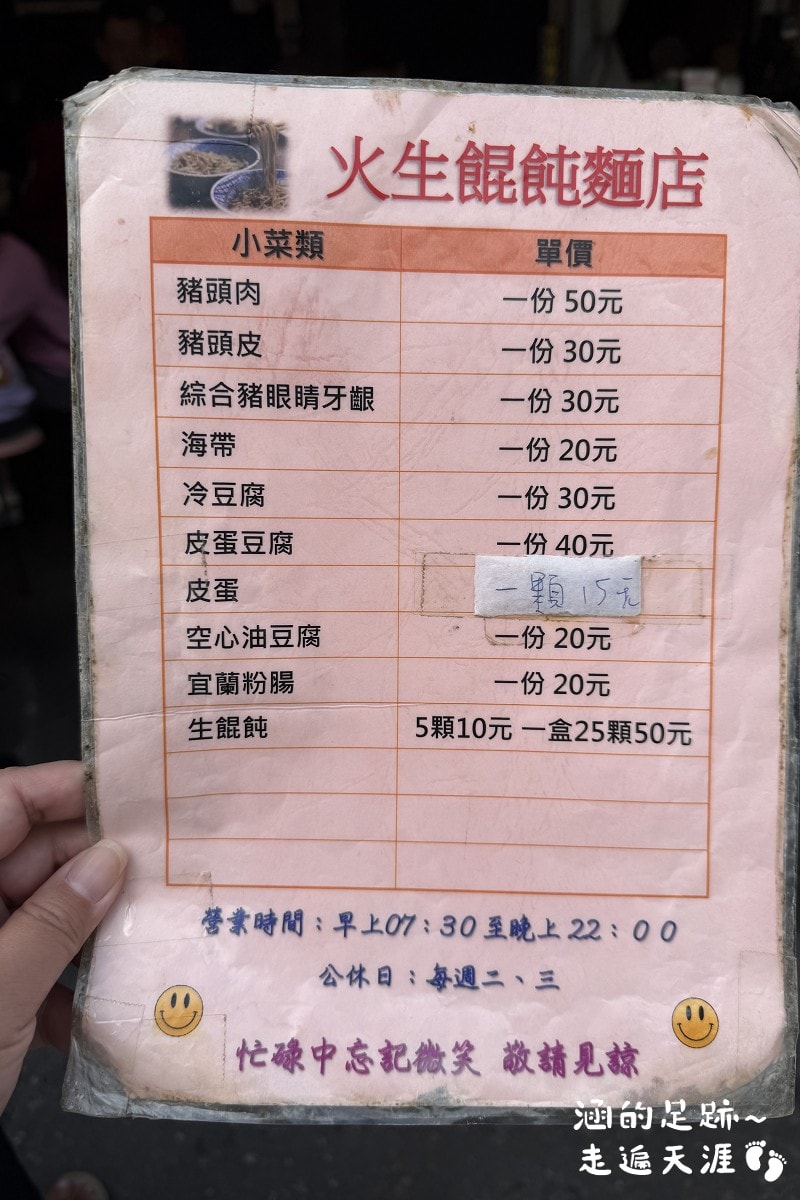 火生餛飩麵店
小菜類 單價
豬頭肉 一份 50元
豬頭皮 一份 30元
綜合豬眼睛牙齦 一份 30元
海帶 一份 20元
冷豆腐 一份 30元
皮蛋豆腐 一份 40元
皮蛋 一顆 15元
空心油豆腐 一份 20元
宜蘭粉腸 一份 20元
生餛飩 5顆10元 一盒25顆50元
營業時間：早上07：30至晚上22：00
公休日：每週二、三
忙碌中忘記微笑 敬請見諒
涵的足跡~
走遍天涯